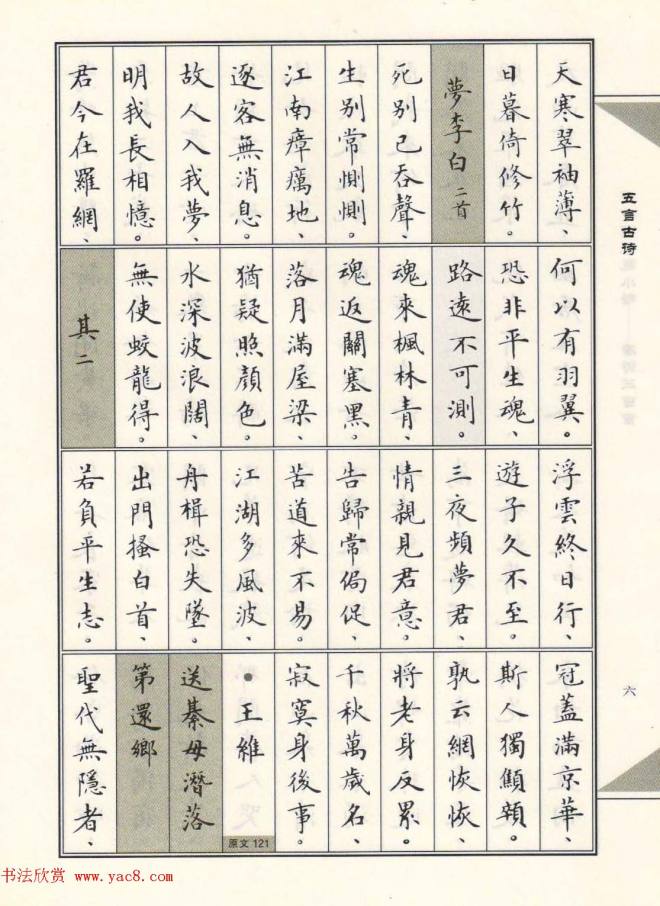 五言古诗
天寒翠袖薄、
日暮倚修竹。
夢李白二首
死別已吞聲、
生別常惻惻。
江南瘴癘地、
逐客無消息。
故人入我夢、
明我長相憶。
君今在羅網、
何以有羽翼。
恐非平生魂、
路遠不可測。
魂來楓林青、
魂返關塞黑。
落月滿屋梁、
猶疑照顏色。
水深波浪闊、
無使蛟龍得。
其二
浮雲終日行、
遊子久不至。
三夜頻夢君、
情親見君意。
告歸常侷促、
苦道來不易。
江湖多風波、
舟楫恐失墜。
出門搔白首、
若負平生志。
冠蓋滿京華、
斯人獨顦顇。
孰云網恢恢、
將老身反累。
千秋萬歲名、
寂寞身後事。
•王維
原文 121
送綦毋潛落
第還鄉
聖代無隱者、
六
书法欣赏 www.yac8.com